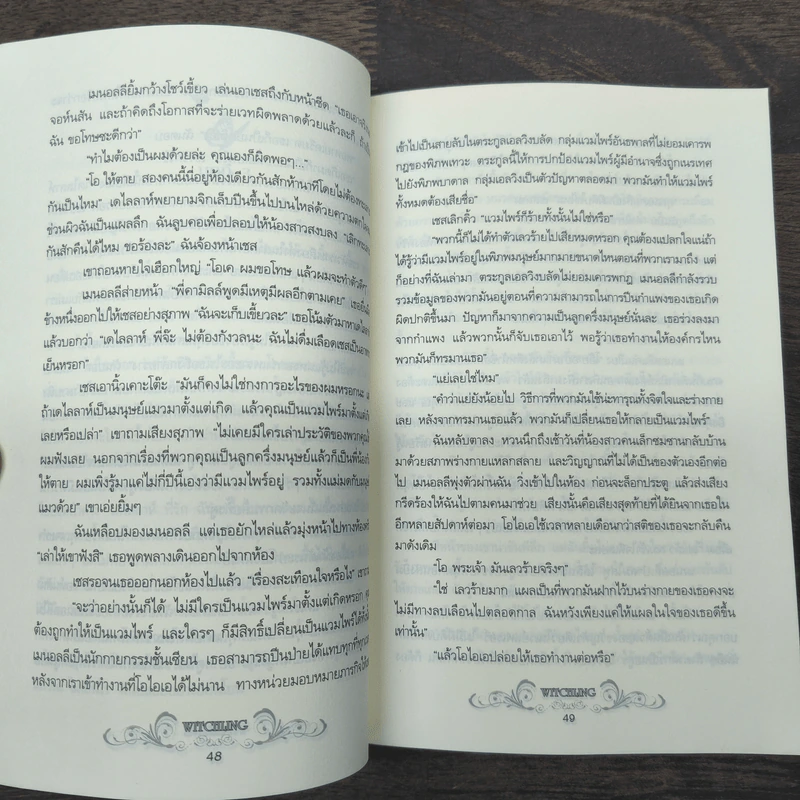 เมนอลลียิ้มกว้างโชว์เขี้ยว เล่นเอาเชสถึงกับหน้าซีด "เธอเอาจริง
จอห์นสัน และถ้าคิดถึงโอกาสที่จะร่ายเวทผิดพลาดด้วยแล้วละก็
ฉัน ขอโทษซะดีกว่า"
"ทำไมต้องเป็นผมด้วยล่ะ คุณเองก็ผิดพอๆ..."
"โอ ให้ตาย สองคนนี้นี่อยู่ห้องเดียวกันสักห้านาทีโดยไม่ต้อง
กันเป็นไหม" เดไลลาห์พยายามจิกเล็บปีนขึ้นไปบนไหล่ด้วยความ
ช่วยผิวฉันเป็นแผลลึก ฉันลูบคอเพื่อปลอบให้น้องสาวสงบลง "เลิก
กันสักคืนได้ไหม ขอร้องละ" ฉันจ้องหน้าเชส
เขาถอนหายใจเฮือกใหญ่ "โอเค ผมขอโทษ แล้วผมจะทำตัวดีๆ"
เมนอลลีส่ายหน้า "พี่คามิลล์พูดมีเหตุมีผลอีกตามเคย"
ข้างหนึ่งออกไปให้เชสอย่างสุภาพ "ฉันจะเก็บเขี้ยวละ" เธอโน้มตัวมาหา
แล้วบอกว่า "เดไลลาห์ พี่จ๊ะ ไม่ต้องกังวลนะ ฉันไม่ดื่มเลือดเชสเป็น
เย็นหรอก"
เชสเอานิ้วเคาะโต๊ะ "มันก็คงไม่ใช่กงการอะไรของผมหรอกนะ
ถ้าเดไลลาห์เป็นมนุษย์แมวมาตั้งแต่เกิด แล้วคุณเป็นแวมไพร์มาตั้งแต่
เลยหรือเปล่า" เขาถามเสียงสุภาพ "ไม่เคยมีใครเล่าประวัติของพวกคุณ
ผมฟังเลย นอกจากเรื่องที่พวกคุณเป็นลูกครึ่งมนุษย์แล้วก็เป็นพี่น้อง
ให้ตาย ผมเพิ่งรู้มาแค่ไม่กี่ปีนี้เองว่ามีแวมไพร์อยู่ รวมทั้งแม่มดกับ
แมวด้วย" เขาเอ่ยยิ้มๆ
ฉันเหลือบมองเมนอลลี แต่เธอยักไหล่แล้วมุ่งหน้าไปทาง
"เล่าให้เขาฟังสิ" เธอพูดพลางเดินออกไปจากห้อง
เชสรอจนเธอออกนอกห้องไปแล้ว "เรื่องสะเทือนใจหรือไง"
"จะว่าอย่างนั้นก็ได้ ไม่มีใครเป็นแวมไพร์มาตั้งแต่เกิดหรอก
ต้องถูกทำให้เป็นแวมไพร์ และใครๆ ก็มีสิทธิ์เปลี่ยนเป็นแวมไพร์ได้ทั้ง
เมนอลลีเป็นนักกายกรรมชั้นเซียน เธอสามารถปีนป่ายได้แทบทุกที่
หลังจากเราเข้าทำงานที่โอไอเอได้ไม่นาน ทางหน่วยมอบหมายภารกิจให้
WITCHLING
48
เข้าไปเป็นสายลับในตระกูลเอลวิงบลัด กลุ่มแวมไพร์อันธพาลที่ไม่ยอมเคารพ
กฎของพิภพเทวะ ตระกูลนี้ให้การปกป้องแวมไพร์ผู้มีอำนาจซึ่งถูกเนรเทศ
ไปยังพิภพบาดาล กลุ่มเอลวิงเป็นตัวปัญหาตลอดมา พวกมันทำให้แวมไพร์
ทั้งหมดต้องเสียชื่อ"
เชสเลิกคิ้ว "แวมไพร์ก็ร้ายทั้งนั้นไม่ใช่หรือ"
"พวกนี้ก็ไม่ได้ทำตัวเลวร้ายไปเสียหมดหรอก คุณต้องแปลกใจแน่ถ้า
ได้รู้ว่ามีแวมไพร์อยู่ในพิภพมนุษย์มากมายขนาดไหนตอนที่พวกเรามาถึง แต่
ก็อย่างที่ฉันเล่ามา ตระกูลเอลวิงบลัดไม่เคารพกฎ เมนอลลีกำลังรวบ
รวมข้อมูลของพวกมันอยู่ตอนที่ความสามารถในการปีนกำแพงของเธอเกิด
ผิดปกติขึ้นมา ปัญหาก็มาจากความเป็นลูกครึ่งมนุษย์นั่นละ เธอร่วงลงมา
จากกำแพง แล้วพวกนั้นก็จับเธอเอาไว้ พอรู้ว่าเธอทำงานให้องค์กรไหน
พวกมันก็ทรมานเธอ"
"แย่เลยใช่ไหม"
"คำว่าแย่ยังน้อยไป วิธีการที่พวกมันใช้น่ะทารุณทั้งจิตใจและร่างกาย
เลย หลังจากทรมานเธอแล้ว พวกมันก็เปลี่ยนเธอให้กลายเป็นแวมไพร์"
ฉันหลับตาลง หวนนึกถึงเช้าวันที่น้องสาวคนเล็กซมซานกลับบ้าน
มาด้วยสภาพร่างกายแหลกสลาย และวิญญาณที่ไม่ได้เป็นของตัวเองอีกต่อ
ไป เมนอลลีพุ่งตัวผ่านฉัน วิ่งเข้าไปในห้อง ก่อนจะล็อกประตู แล้วส่งเสียง
กรีดร้องให้ฉันไปตามคนมาช่วย เสียงนั้นคือเสียงสุดท้ายที่ได้ยินจากเธอใน
อีกหลายสัปดาห์ต่อมา โอไอเอใช้เวลาหลายเดือนกว่าสติของเธอจะกลับคืน
มาดังเดิม
"โอ พระเจ้า มันเลวร้ายจริงๆ"
"ใช่ เลวร้ายมาก แผลเป็นที่พวกมันฝากไว้บนร่างกายของเธอคงจะ
ไม่มีทางลบเลือนไปตลอดกาล ฉันหวังเพียงแค่ให้แผลในใจของเธอดีขึ้น
เท่านั้น"
"แล้วโอไอเอปล่อยให้เธอทำงานต่อหรือ"
WITCHLING
49